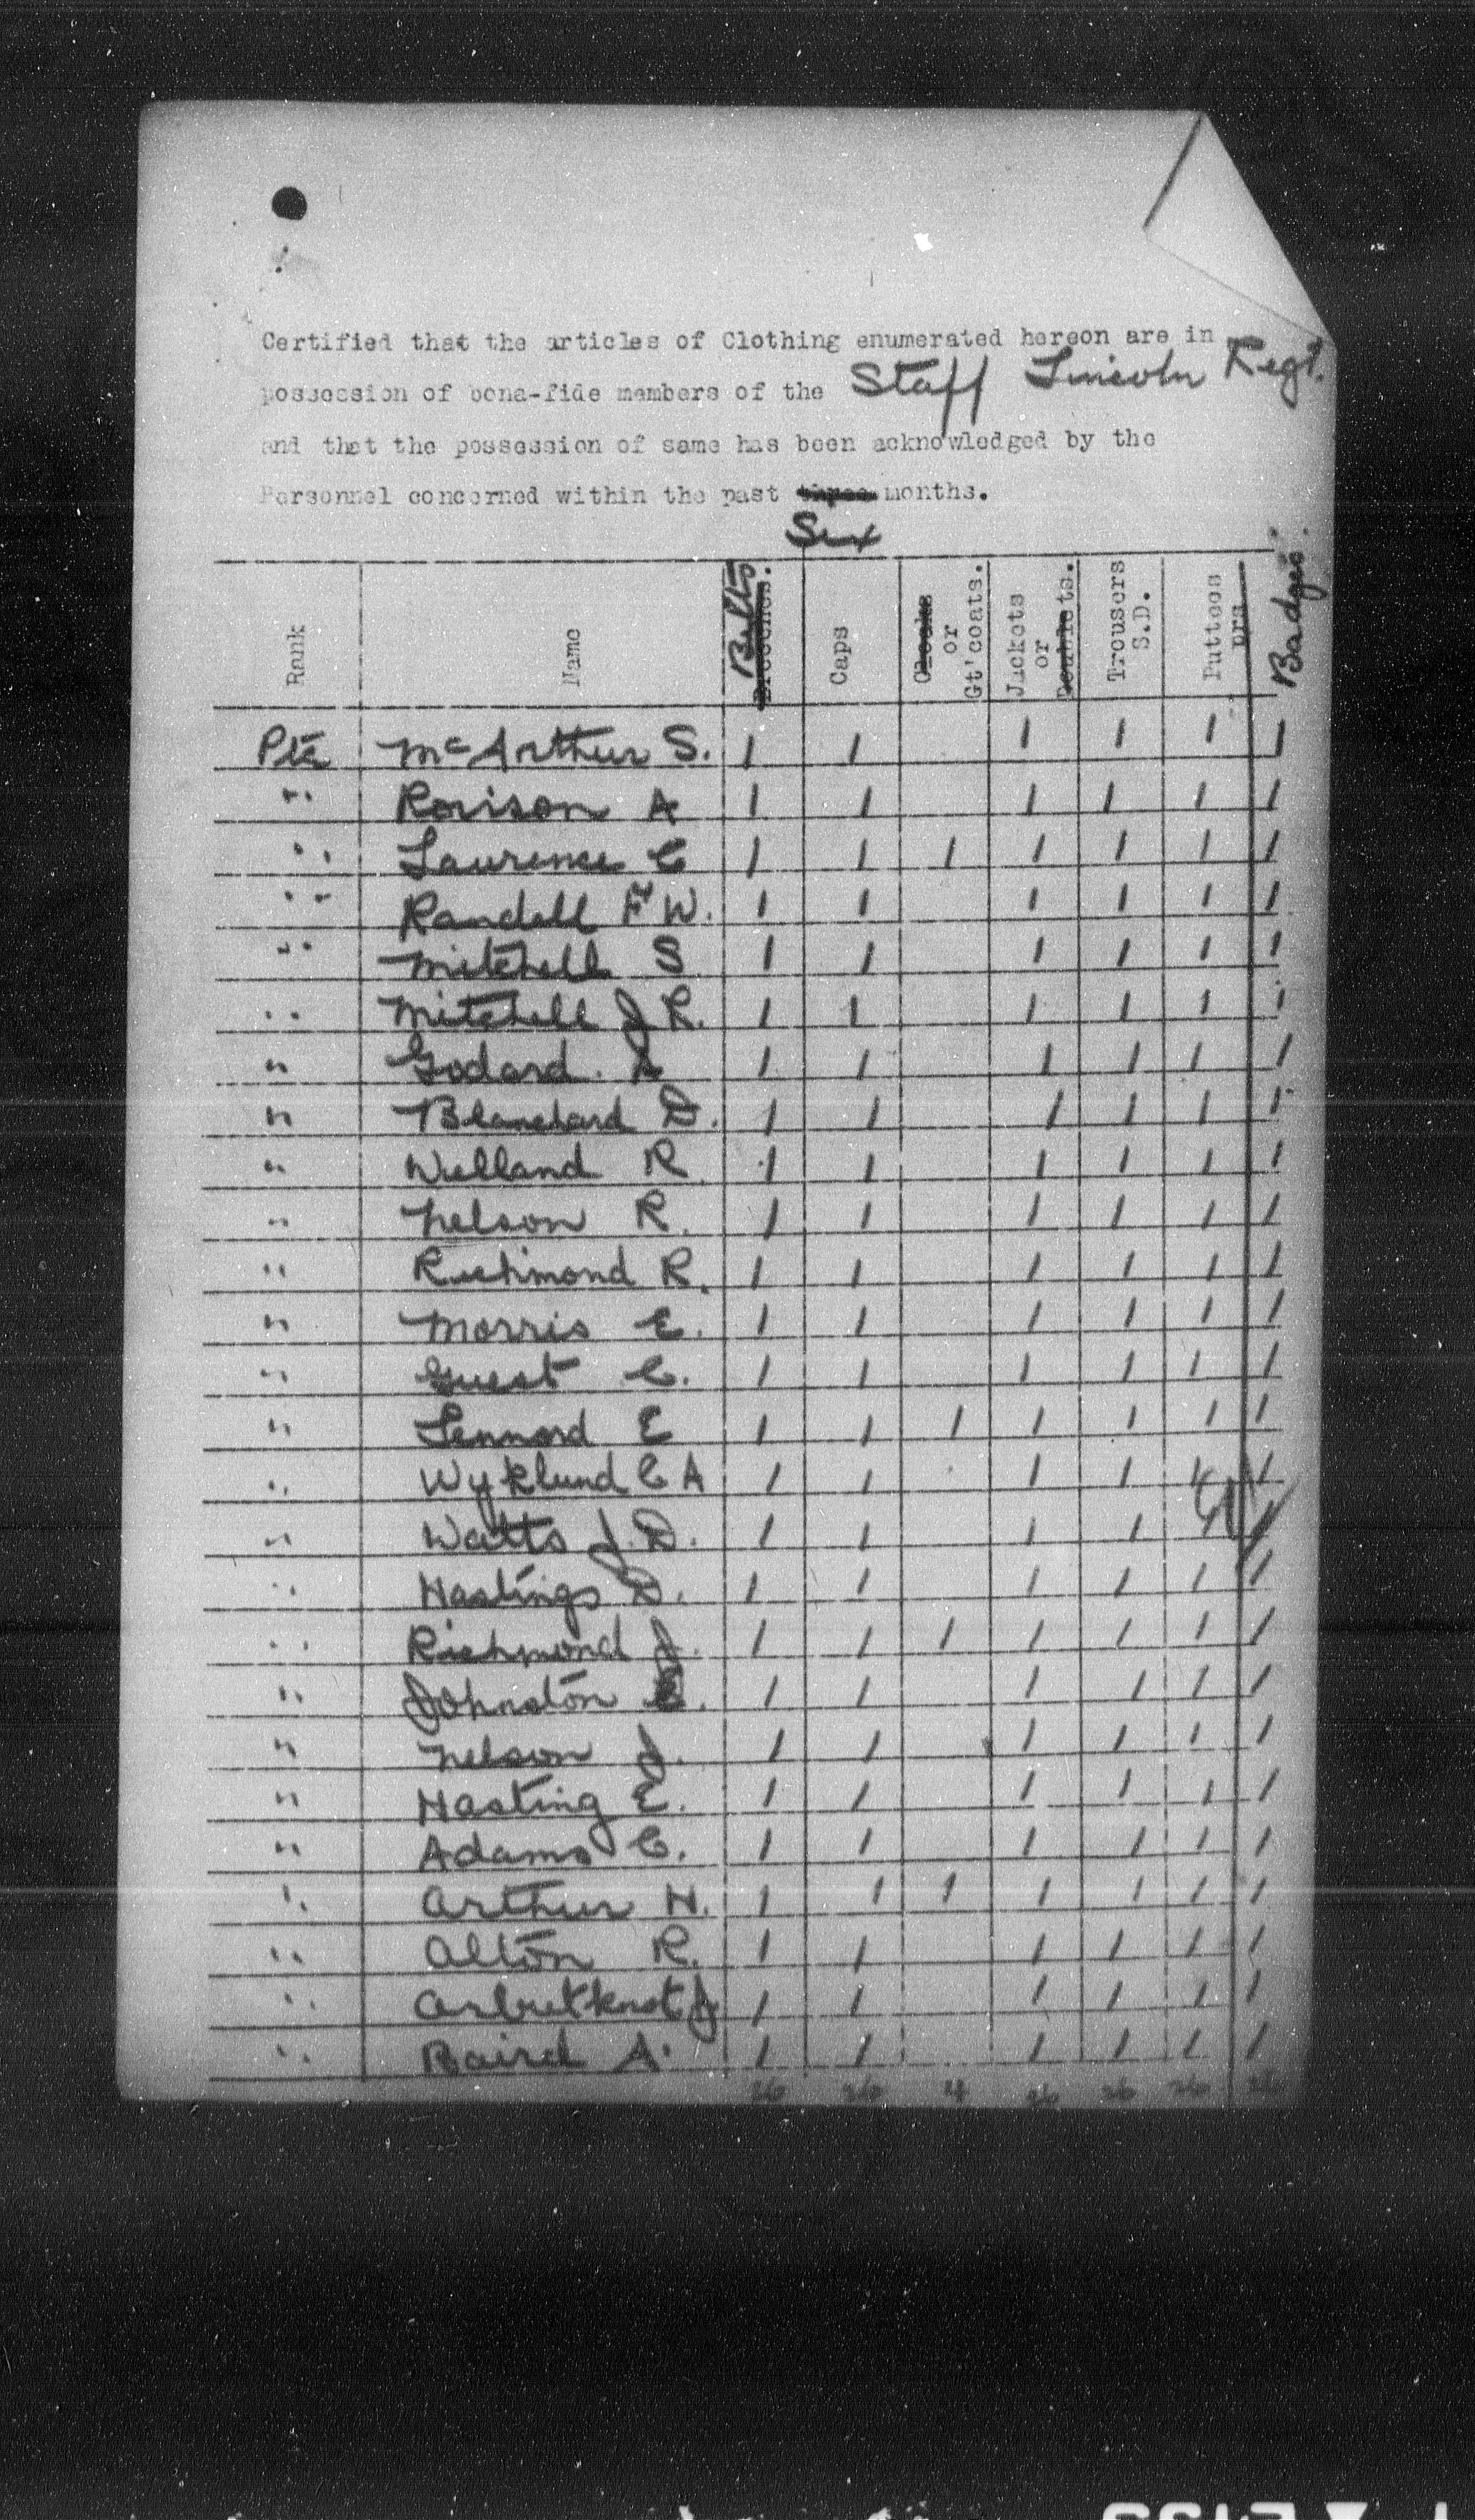 Certified that the articles of Clothing enumerated hereon are in
possession of bona-fide members of the Staff Lincoln Regt.
and that the possession of same has been acknowledged by the
Personnel concerned within the past three months.
Six
Rank Name Breeches. Belts Caps Cloaks or Gt'coats. Jackets or Doublets. Trousers S.D. Puttees prs Badges.
Pte McArthur S. 1 1 1 1 1 1
" Rorison A 1 1 1 1 1 1
" Laurence C 1 1 1 1 1 1 1
" Randall F W. 1 1 1 1 1 1
" Mitchell S 1 1 1 1 1 1
" Mitchell J R. 1 1 1 1 1 1
" Godard. A 1 1 1 1 1 1
" Blanchard D. 1 1 1 1 1 1
" Welland R. 1 1 1 1 1 1
" Nelson R. 1 1 1 1 1 1
" Richmond R. 1 1 1 1 1 1
" Morris E. 1 1 1 1 1 1
" Guest C. 1 1 1 1 1 1
" Lennord E 1 1 1 1 1 1 1
" Wyklund C A 1 1 1 1 1 1
" Watts J. D. 1 1 1 1
" Hastings D. 1 1 1 1 1 1
" Richmond J. 1 1 1 1 1 1 1
" Johnston 1 1 1 1 1 1
" Nelson J. 1 1 1 1 1 1
" Hasting E. 1 1 1 1 1 1
" Adams C. 1 1 1 1 1 1
" Arthur H. 1 1 1 1 1 1 1
" Alton R. 1 1 1 1 1 1
" Arbuthnot J 1 1 1 1 1 1
" Baird A. 1 1 1 1 1 1
26 26 4 26 26 26 26